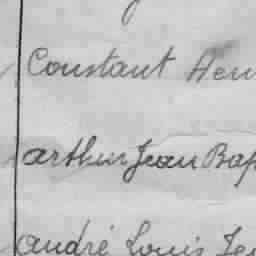 Constant Hen
arthur Jean Bap
andré Louis Fe